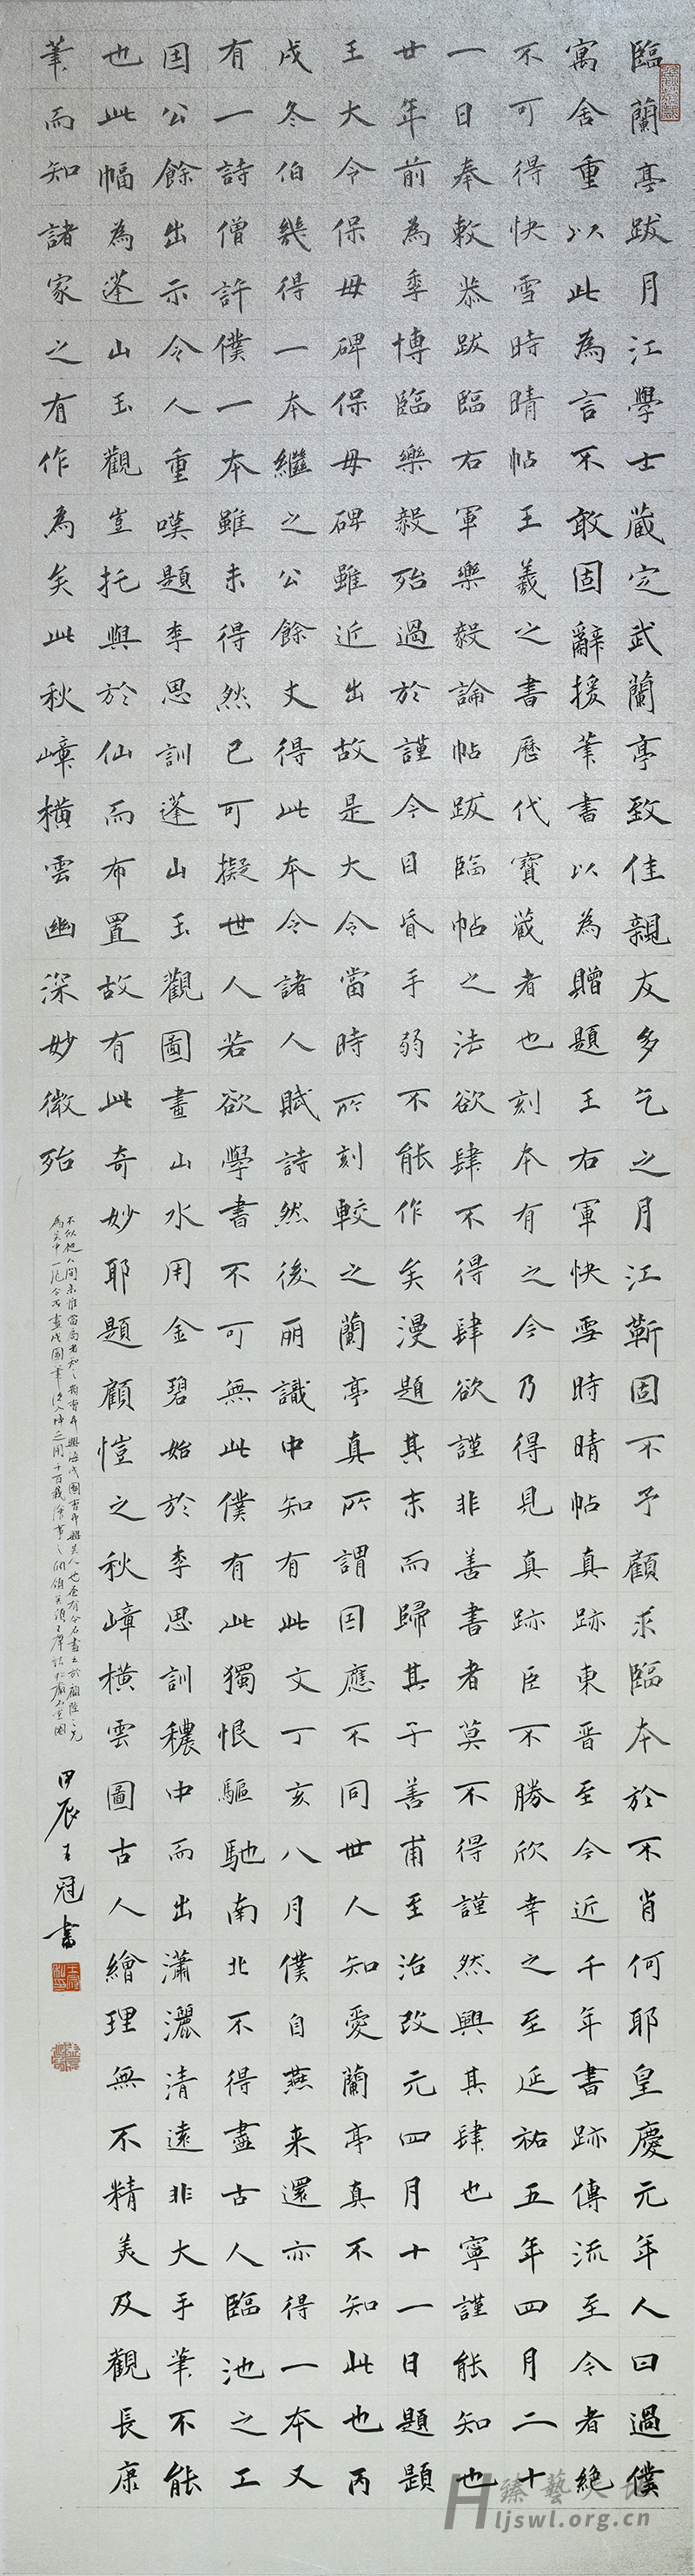 臨蘭亭跋月江學士藏定武蘭亭致佳親友多乞之月江靳固不予顧求臨本於不肖何耶皇慶元年人日過僕
寓舍重以此為言不敢固辭援筆書以為贈題王右軍快雪時晴帖真跡東晉至今近千年書跡傳流至今者絕
不可得快雪時晴帖王羲之書歷代寶藏者也刻本有之今乃得見真跡臣不勝欣幸之至延祐五年四月二十
一日奉敕恭跋臨右軍樂毅論帖跋臨帖之法欲肆不得肆欲謹非善書者莫不得謹然與其肆也寧謹能知也
廿年前為季博臨樂毅殆過於謹今目昏手弱不能作矣漫題其末而歸其子善甫至治改元四月十一日題題
王大令保毋碑保毋碑雖近出故是大令當時所刻較之蘭亭真所謂因應不同世人知愛蘭亭真不知此也丙
戌冬伯幾得一本繼之公餘丈得此本令諸人賦詩然後丽識中知有此文丁亥八月僕自燕来還亦得一本又
有一詩僧許僕一本雖未得然已可擬世人若欲學書不可無此僕有此獨恨驅馳南北不得盡古人臨池之工
囯公餘出示令人重嘆題李思訓蓬山玉觀圖畫山水用金碧始於李思訓穠中而出瀟灑清遠非大手筆不能
也此幅為蓬山玉觀豈托興於仙而布置故有此奇妙耶題顧愷之秋嶂橫雲圖古人繪理無不精美及觀長康
筆而知諸家之有作為矣此秋嶂橫雲幽深妙微殆
甲辰王冠書
臻藝
ljswl.org.cn